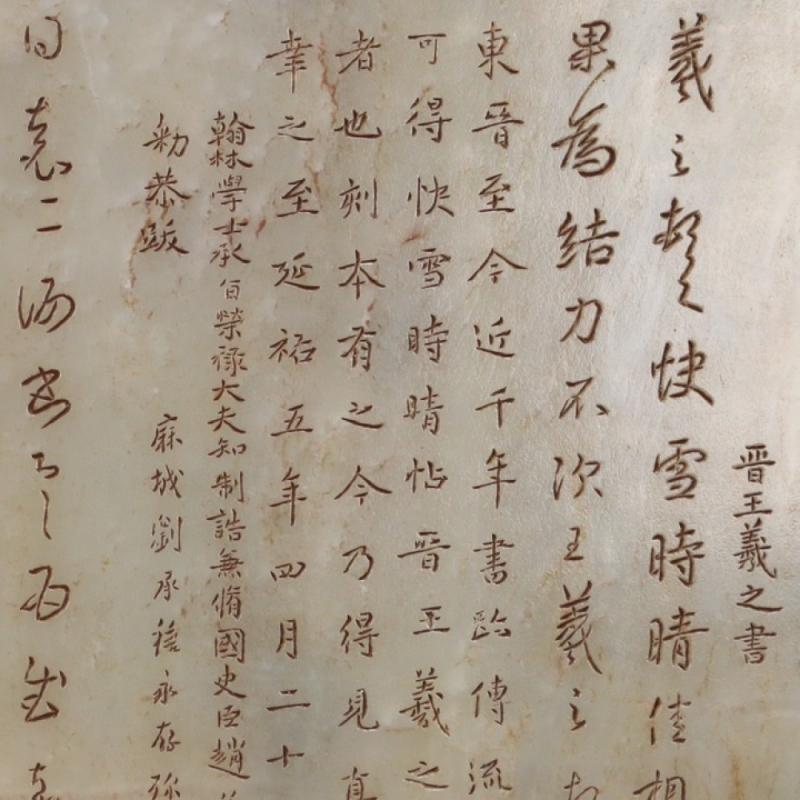 晋王羲之書
羲之頓首快雪時晴佳想
果為結力不次王羲之頓
東晉至今近千年書跡傳流
可得快雪時晴帖晉王羲之
者也刻本有之今乃得見真
幸之至延祐五年四月二十
翰林學士承旨榮祿大夫知制誥兼脩國史臣趙
勑恭跋
麻城劉承禧永存珎